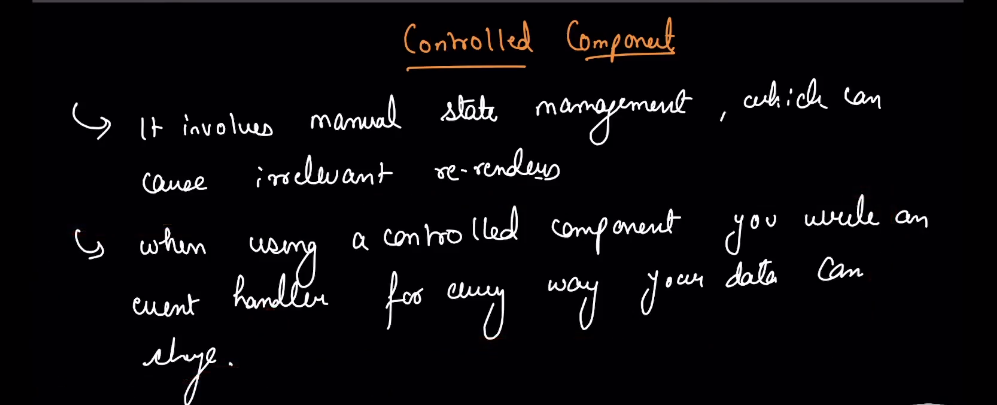 Controlled Component
↳ It involves manual state management, which can
cause irrelevant re-renders
↳ when using a controlled component you write an
event handler for every way your data can
change.